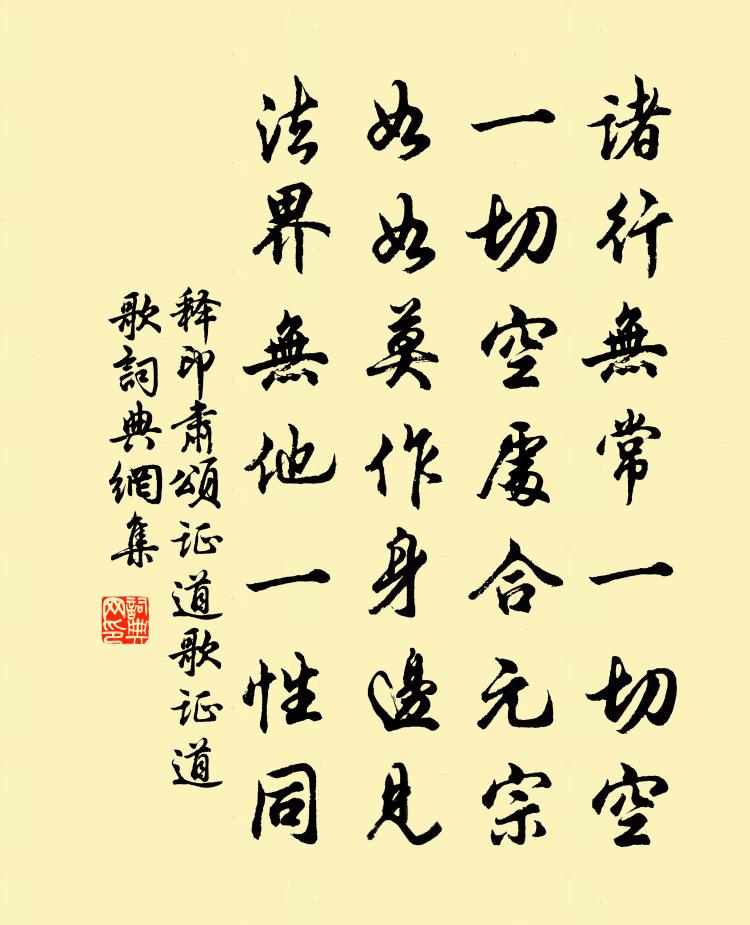 諸行無常一切空
一切空處合元宗
如如莫作身邊見
法界無他一性同
释印肃頌证道歌证道
歌詞典網集
詞典网印